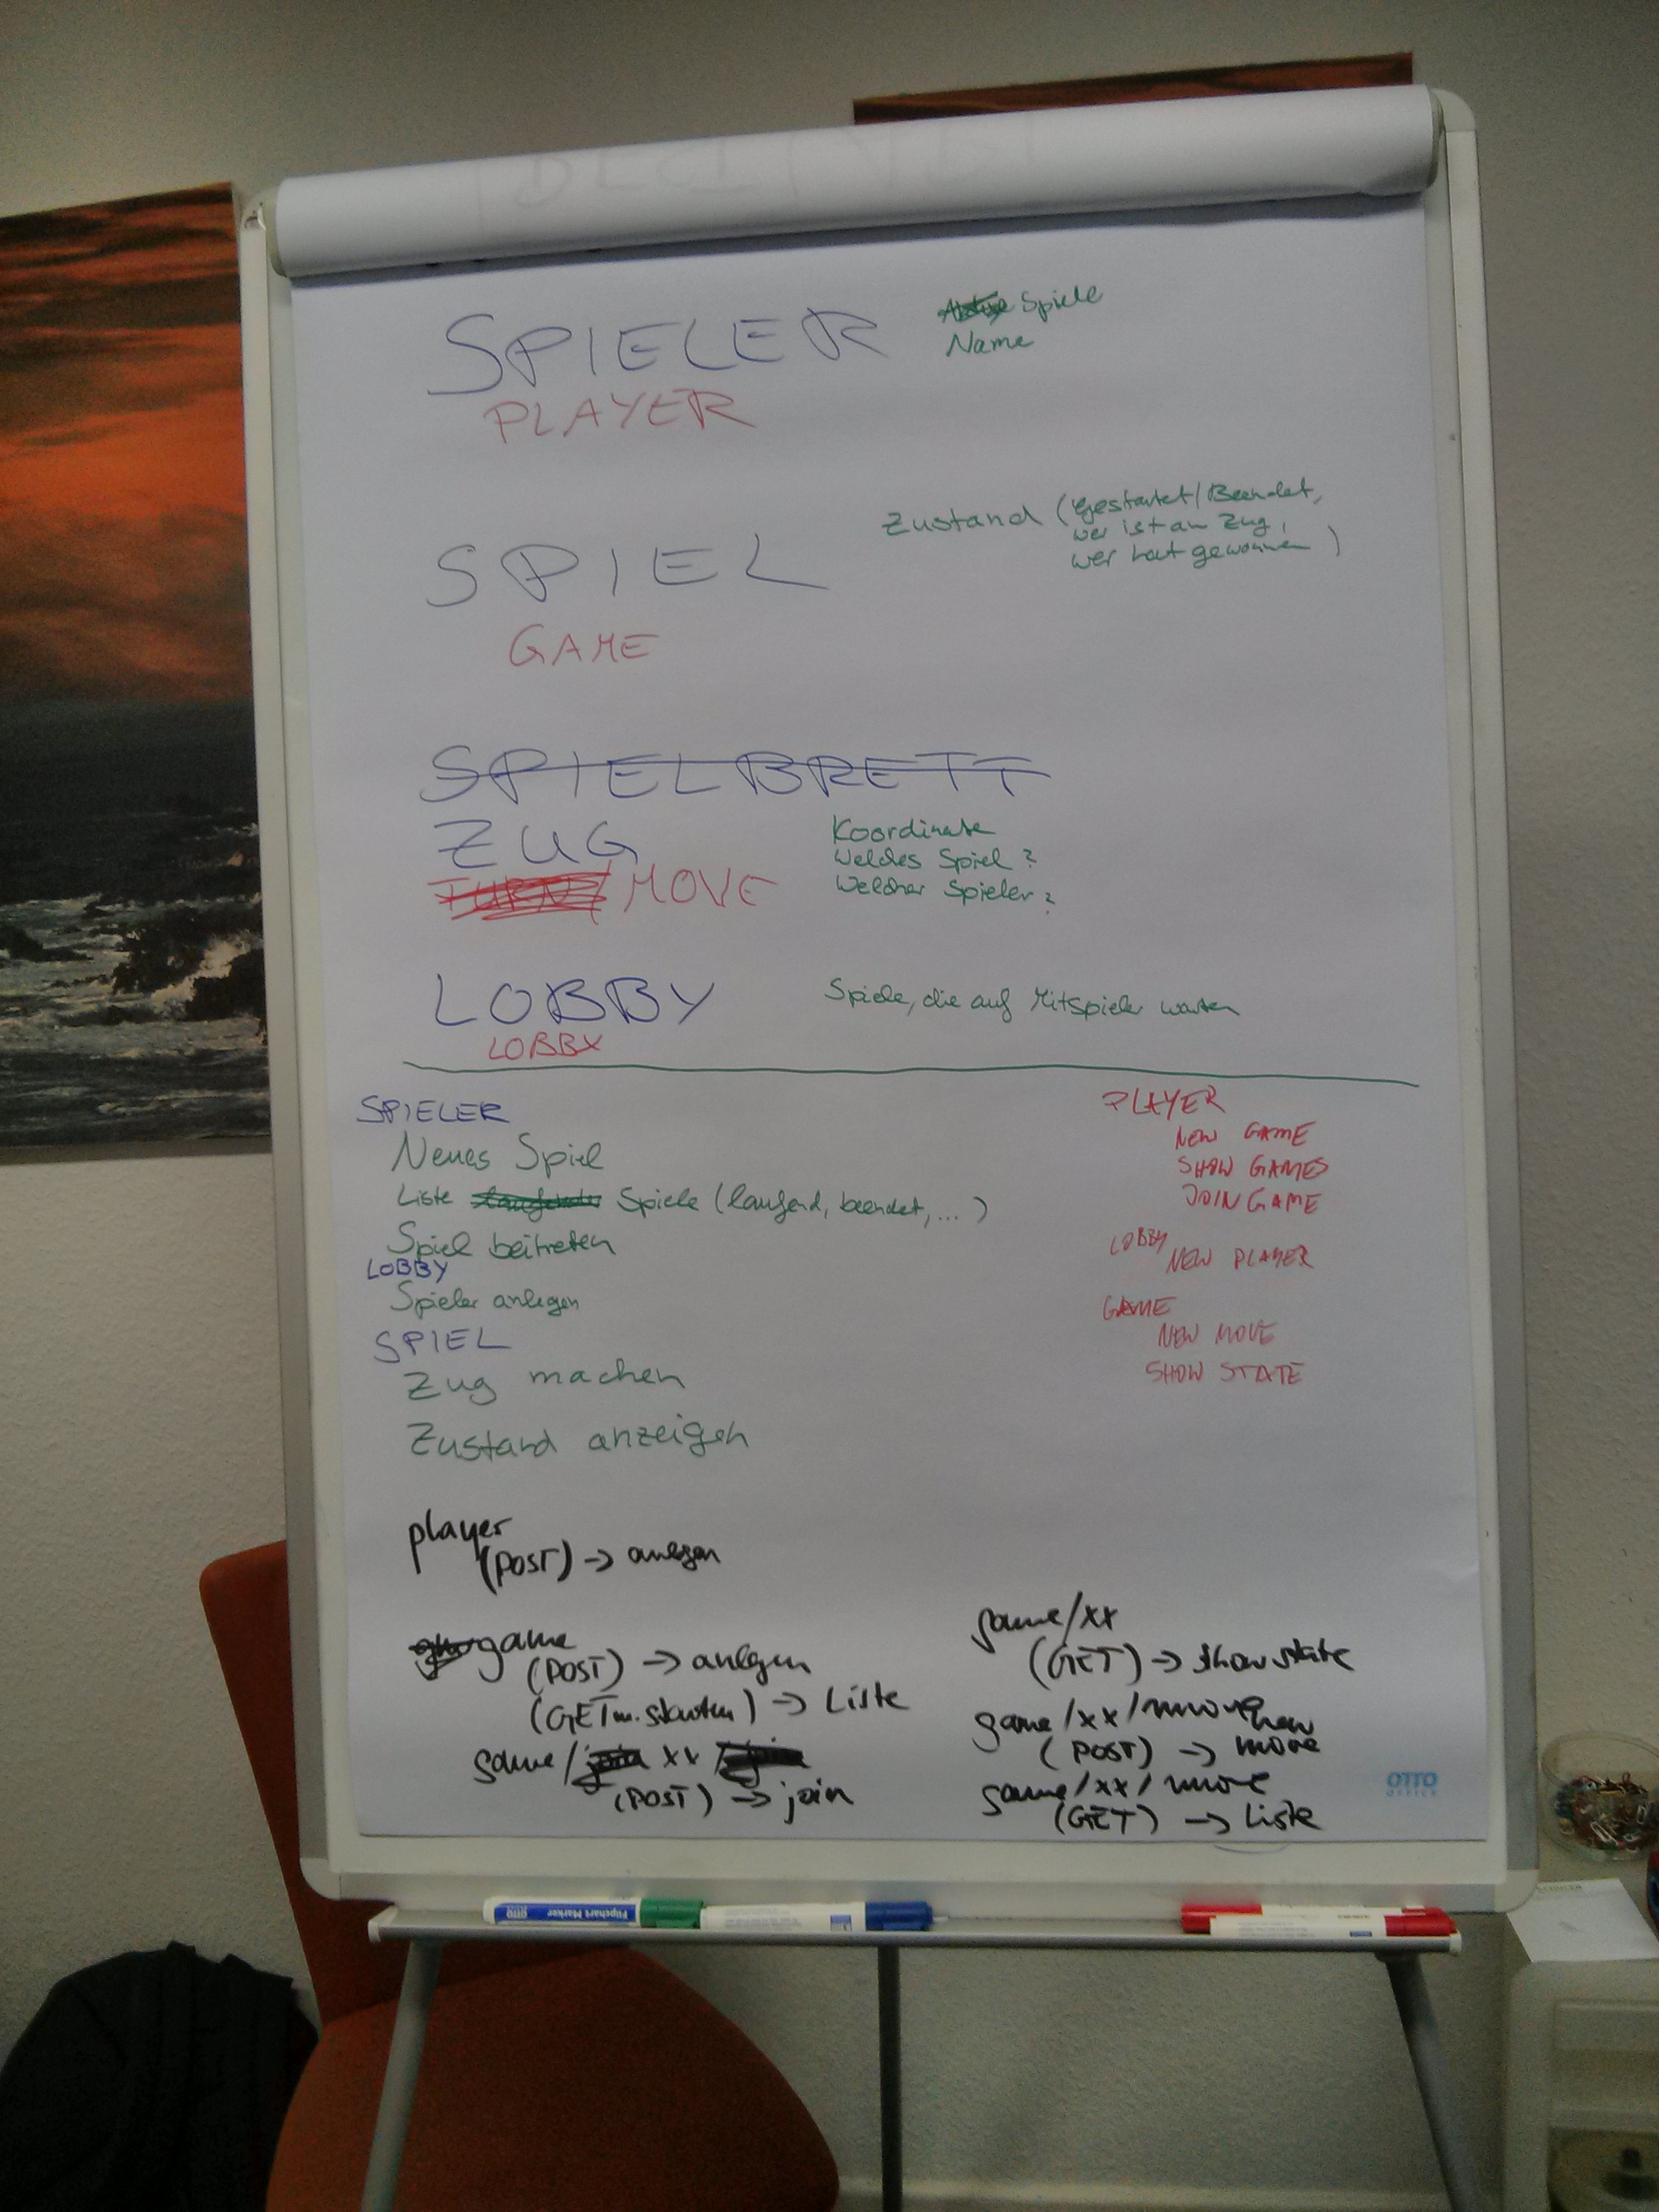 SPIELER
Spiele
Name
PLAYER
Zustand (Gestartet/Beendet,
wer ist am Zug,
wer hat gewonnen)
SPIEL
GAME
SPIELBRETT
ZUG
Koordinate
Welches Spiel?
Welcher Spieler?
TURN/ MOVE
LOBBY
Spiele, die auf Mitspieler warten
LOBBY
SPIELER
Neues Spiel
Liste Spiele (laufend, beendet, ...)
Spiel beitreten
LOBBY
Spieler anlegen
SPIEL
Zug machen
Zustand anzeigen
PLAYER
NEW GAME
SHOW GAMES
JOIN GAME
LOBBY
NEW PLAYER
GAME
NEW MOVE
SHOW STATE
player
(POST) -> anlegen
game
(POST) -> anlegen
(GET) -> Liste
game/ join xx
(POST) -> join
game/xx
(GET) -> show state
game/xx/move
(POST) -> new move
game/xx/move
(GET) -> Liste
OTTO
OFFICE
Flipchart Marker